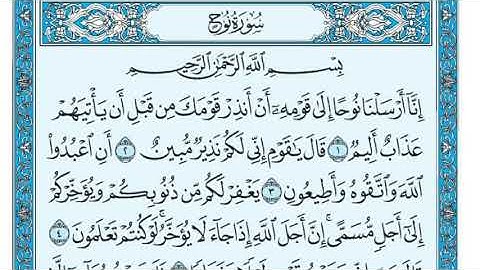 سُورَةُ نُوحٍ
بِسْمِ ٱللَّهِ ٱلرَّحْمَٰنِ ٱلرَّحِيمِ
إِنَّآ أَرْسَلْنَا نُوحًا إِلَىٰ قَوْمِهِۦٓ أَنْ أَنذِرْ قَوْمَكَ مِن قَبْلِ أَن يَأْتِيَهُمْ
عَذَابٌ أَلِيمٌ ١ قَالَ يَٰقَوْمِ إِنِّى لَكُمْ نَذِيرٌ مُّبِينٌ ٢ أَنِ ٱعْبُدُوا۟
ٱللَّهَ وَٱتَّقُوهُ وَأَطِيعُونِ ٣ يَغْفِرْ لَكُم مِّن ذُنُوبِكُمْ وَيُؤَخِّرْكُمْ
إِلَىٰٓ أَجَلٍ مُّسَمًّى ۚ إِنَّ أَجَلَ ٱللَّهِ إِذَا جَآءَ لَا يُؤَخَّرُ ۖ لَوْ كُنتُمْ تَعْلَمُونَ ٤